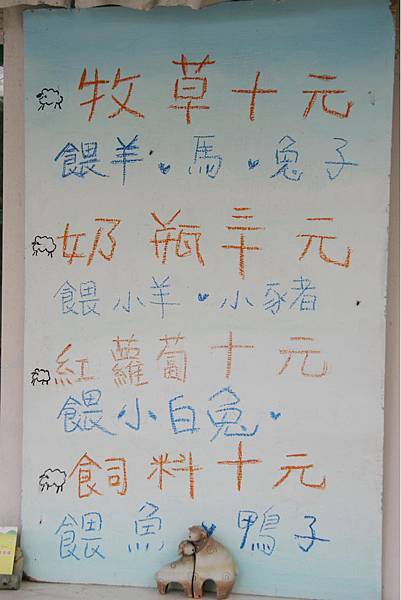 牧草十元
餵羊 馬 兔子
奶瓶 元
餵小羊 小豬
紅蘿蔔十元
餵小白兔
飼料十元
餵魚 鴨子